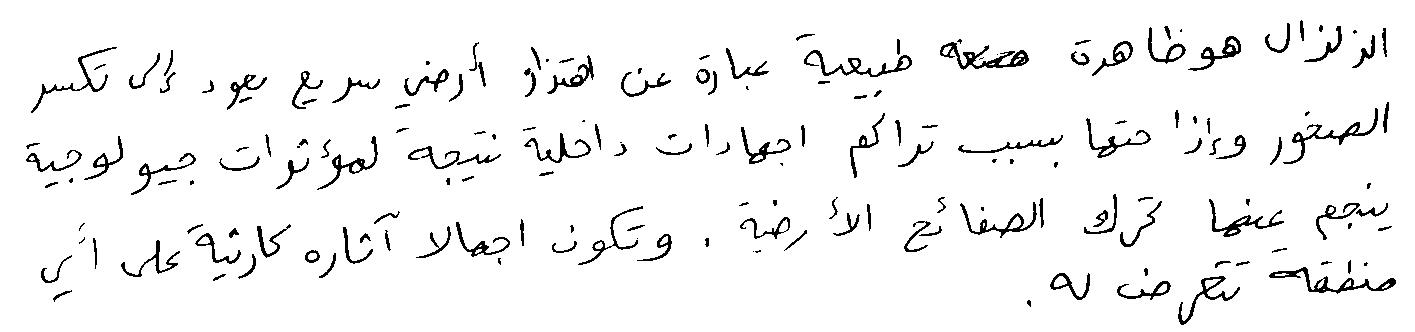 الزلزال هو ظاهرة طبيعية عبارة عن اهتزاز أرضي سريع يعود إلى تكسر
الصخور وإزاحتها بسبب تراكم اجهادات داخلية نتيجة لمؤثرات جيولوجية
ينجم عنها تحرك الصفائح الأرضية . وتكون اجمالا آثاره كارثية على أي
منطقة تتعرض له .